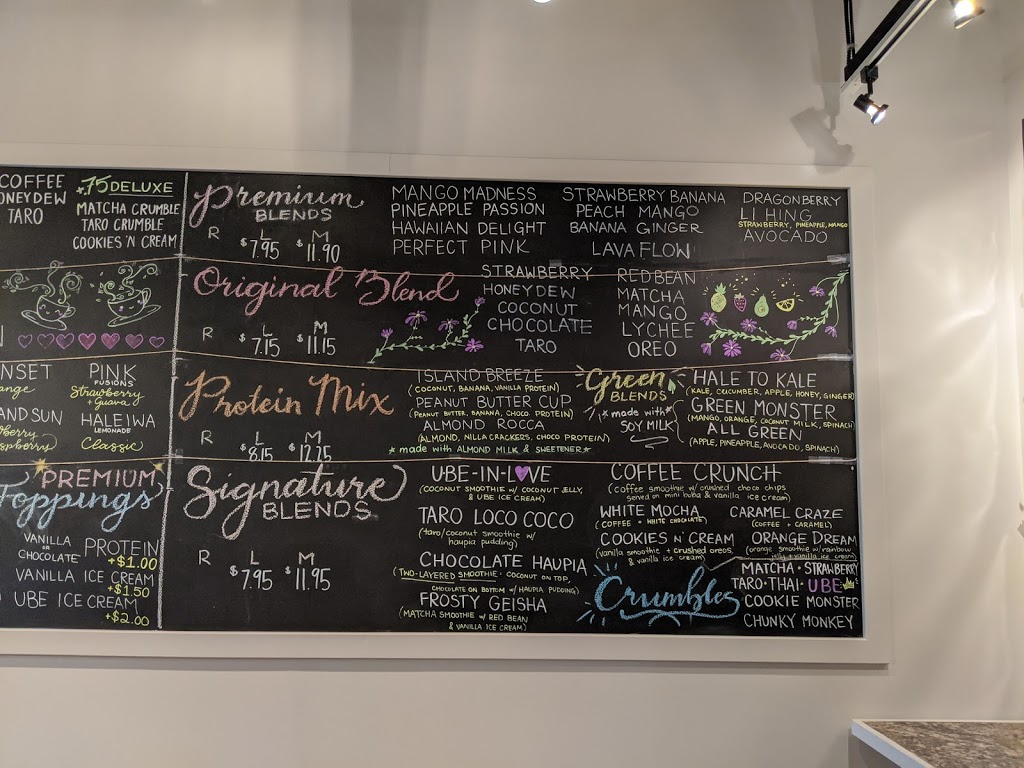 COFFEE
HONEYDEW
TARO
+.75 DELUXE
MATCHA CRUMBLE
TARO CRUMBLE
COOKIES 'N CREAM
NSET
ange
AND SUN
berry
spberry
PINK
FUSIONS
Strawberry
+ Guava
HALEIWA
LEMONADE
Classic
PREMIUM
Toppings
VANILLA
OR
CHOCOLATE PROTEIN
+$1.00
VANILLA ICE CREAM
+$1.50
UBE ICE CREAM
+$2.00
Premium
BLENDS
R L M
$7.95 $11.90
MANGO MADNESS
PINEAPPLE PASSION
HAWAIIAN DELIGHT
PERFECT PINK
STRAWBERRY BANANA
PEACH MANGO
BANANA GINGER
LAVA FLOW
DRAGONBERRY
LI HING
STRAWBERRY, PINEAPPLE, MANGO
AVOCADO
Original Blend
R L M
$7.15 $11.15
STRAWBERRY
HONEYDEW
COCONUT
CHOCOLATE
TARO
RED BEAN
MATCHA
MANGO
LYCHEE
OREO
Protein Mix
R L M
$8.15 $12.25
ISLAND BREEZE
(COCONUT, BANANA, VANILLA PROTEIN)
PEANUT BUTTER CUP
(PEANUT BUTTER, BANANA, CHOCO PROTEIN)
ALMOND ROCCA
(ALMOND, NILLA CRACKERS, CHOCO PROTEIN)
*made with ALMOND MILK & SWEETENER*
Green
BLENDS
*made with*
SOY MILK
HALE TO KALE
(KALE, CUCUMBER, APPLE, HONEY, GINGER)
GREEN MONSTER
(MANGO, ORANGE, COCONUT MILK, SPINACH)
ALL GREEN
(APPLE, PINEAPPLE, AVOCADO, SPINACH)
Signature
BLENDS
R L M
$7.95 $11.95
UBE-IN-LOVE
(COCONUT SMOOTHIE W/ COCONUT JELLY,
& UBE ICE CREAM)
TARO LOCO COCO
(taro/coconut smoothie w/
haupia pudding)
CHOCOLATE HAUPIA
(TWO-LAYERED SMOOTHIE · COCONUT ON TOP,
CHOCOLATE ON BOTTOM W/ HAUPIA PUDDING)
FROSTY GEISHA
(MATCHA SMOOTHIE W/ RED BEAN
& VANILLA ICE CREAM)
COFFEE CRUNCH
(coffee smoothie w/ crushed choco chips
served on mini boba & vanilla ice cream)
WHITE MOCHA
(COFFEE + WHITE CHOCOLATE)
CARAMEL CRAZE
(COFFEE + CARAMEL)
COOKIES N' CREAM
(vanilla smoothie + crushed oreos
& vanilla ice cream)
ORANGE DREAM
(orange smoothie w/ rainbow
jelly & vanilla ice cream)
Crumbles
MATCHA · STRAWBERRY
TARO · THAI · UBE
COOKIE MONSTER
CHUNKY MONKEY